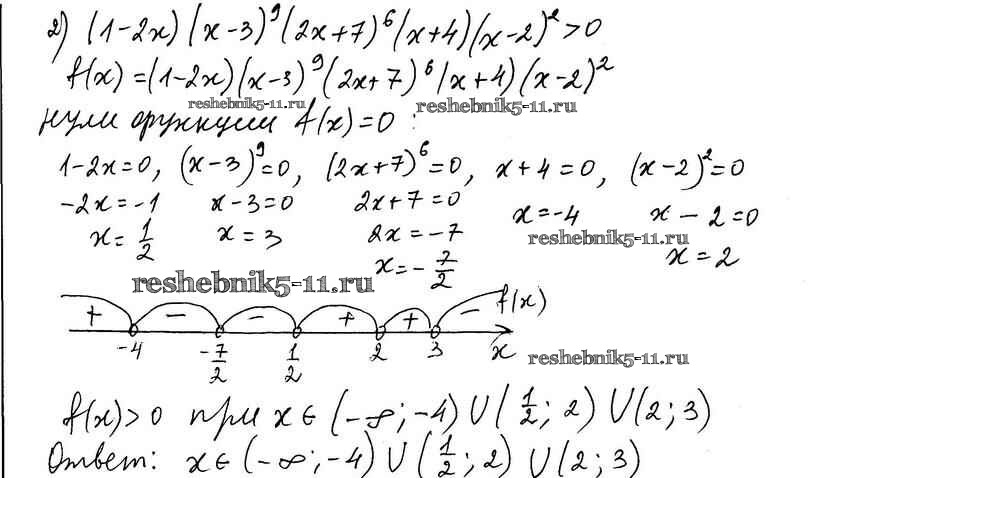 2) (1-2x)(x-3)⁹(2x+7)⁶(x+4)(x-2)²>0
f(x)=(1-2x)(x-3)⁹(2x+7)⁶(x+4)(x-2)²
reshebnik5-11.ru reshebnik5-11.ru
нули функции f(x)=0:
1-2x=0, (x-3)⁹=0, (2x+7)⁶=0, x+4=0, (x-2)²=0
-2x=-1 x-3=0 2x+7=0 x=-4 x-2=0
x=1/2 x=3 2x=-7 reshebnik5-11.ru x=2
x=-7/2
reshebnik5-11.ru
+ - - + + - f(x)
-4 -7/2 1/2 2 3 x
reshebnik5-11.ru
f(x)>0 при x∈(-∞;-4)∪(1/2;2)∪(2;3)
Ответ: x∈(-∞;-4)∪(1/2;2)∪(2;3)